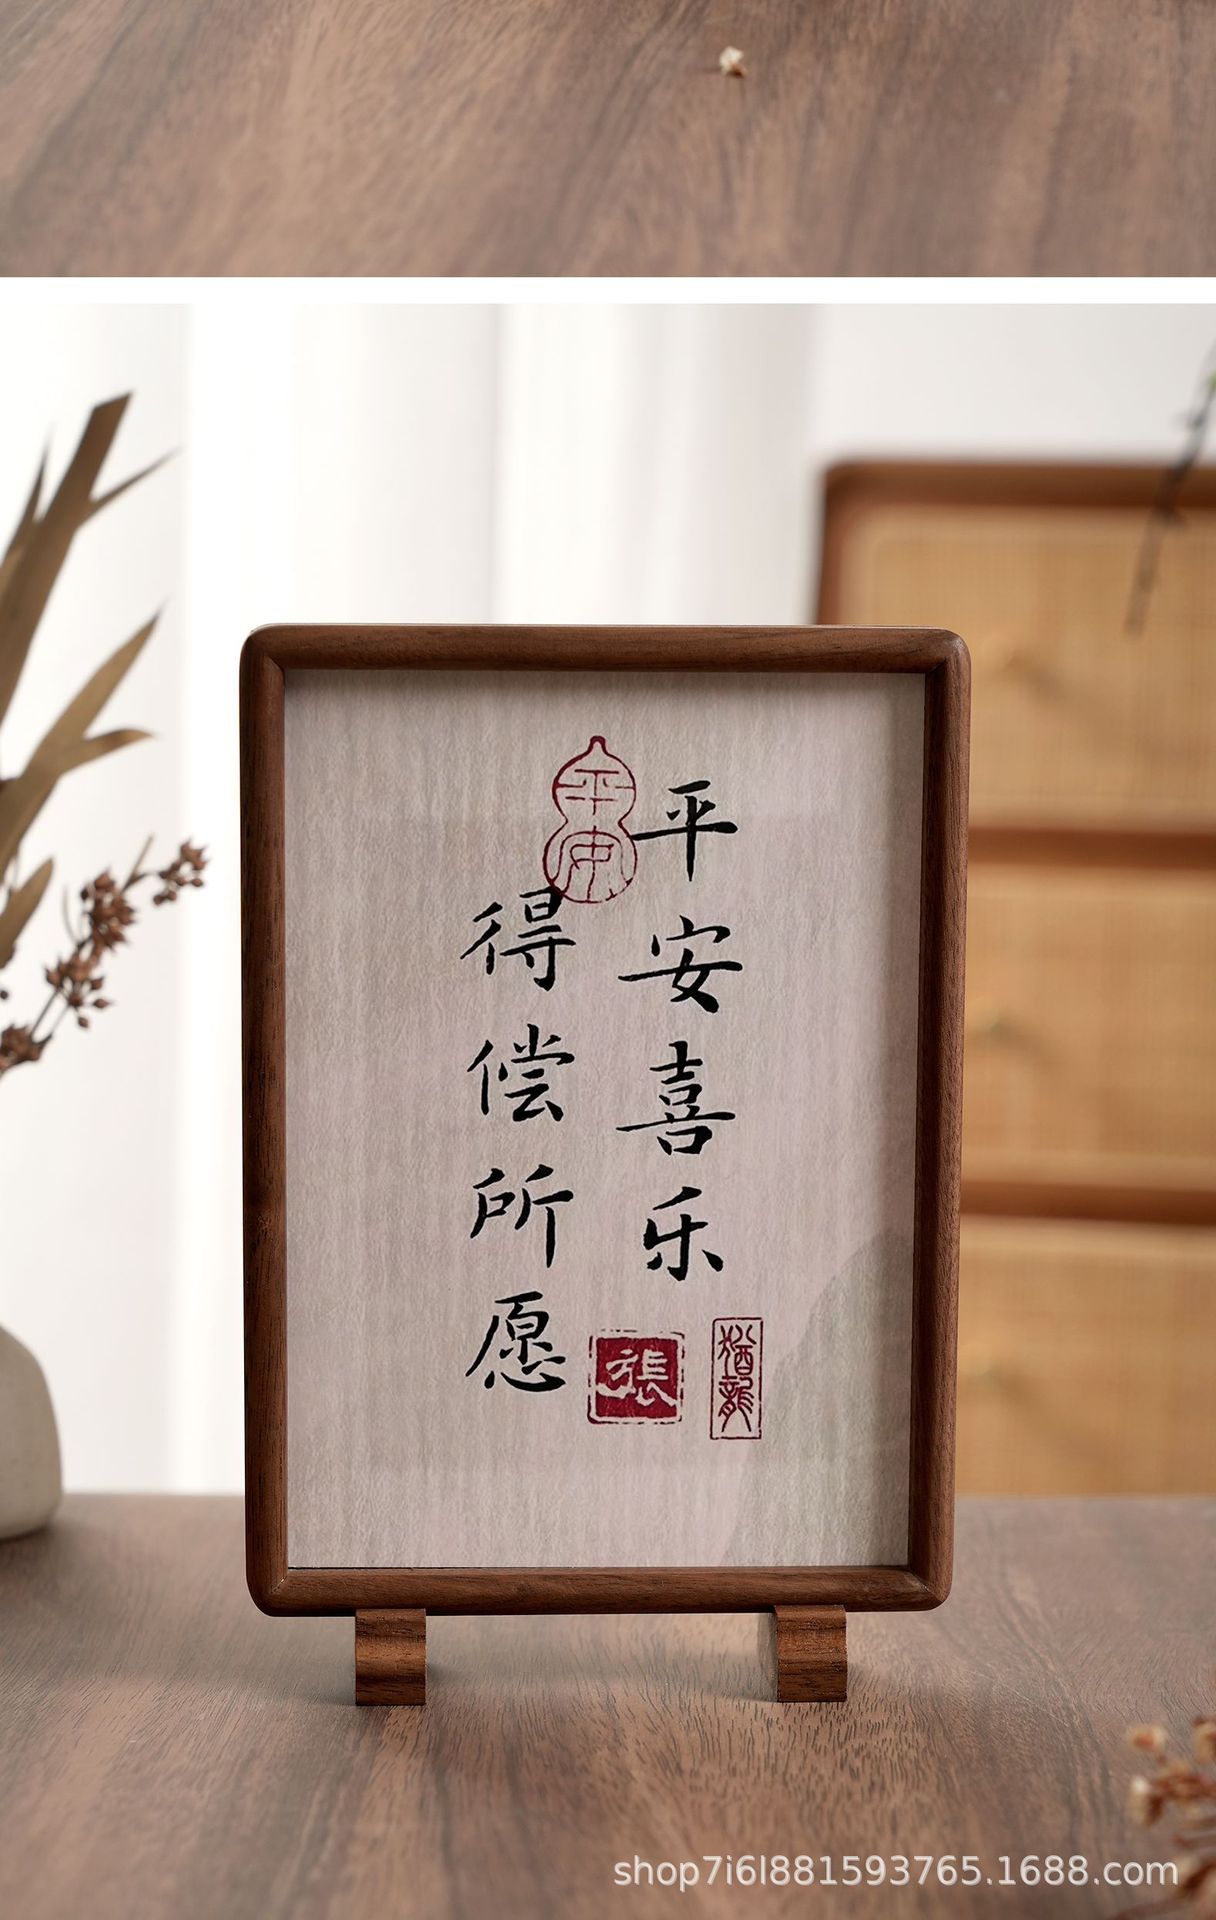 平安喜乐
得偿所愿
平安
張
猶龍
shop7i6l881593765.1688.com